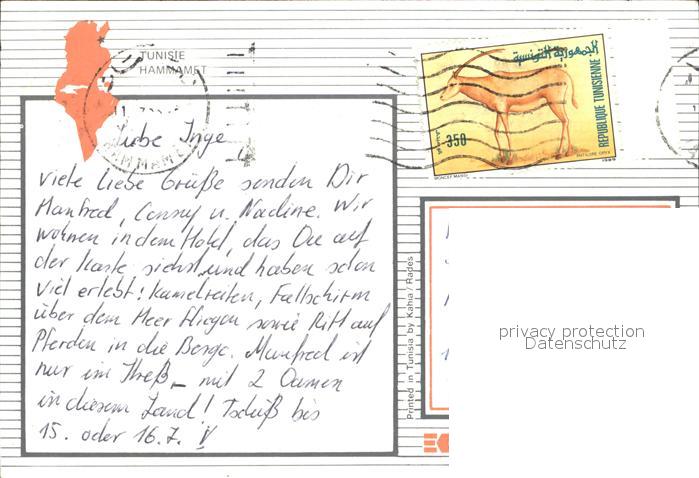 TUNISIE
HAMMAMET
Liebe Inge
Viele liebe Grüße senden Dir
Manfred, Conny u. Nadine. Wir
wohnen in dem Hotel, das Du auf
der Karte siehst, und haben schon
viel erlebt! Kamelreiten, Fallschirm
über dem Meer fliegen sowie Ritt auf
Pferden in die Berge. Manfred ist
nur im Streß – mit 2 Damen
in diesem Land! Tschüß bis
15. oder 16.7.
الجمهورية التونسية
REPUBLIQUE TUNISIENNE
350
ANTILOPE ORYX
1989
Printed in Tunisia by Kahia / Rades
privacy protection
Datenschutz